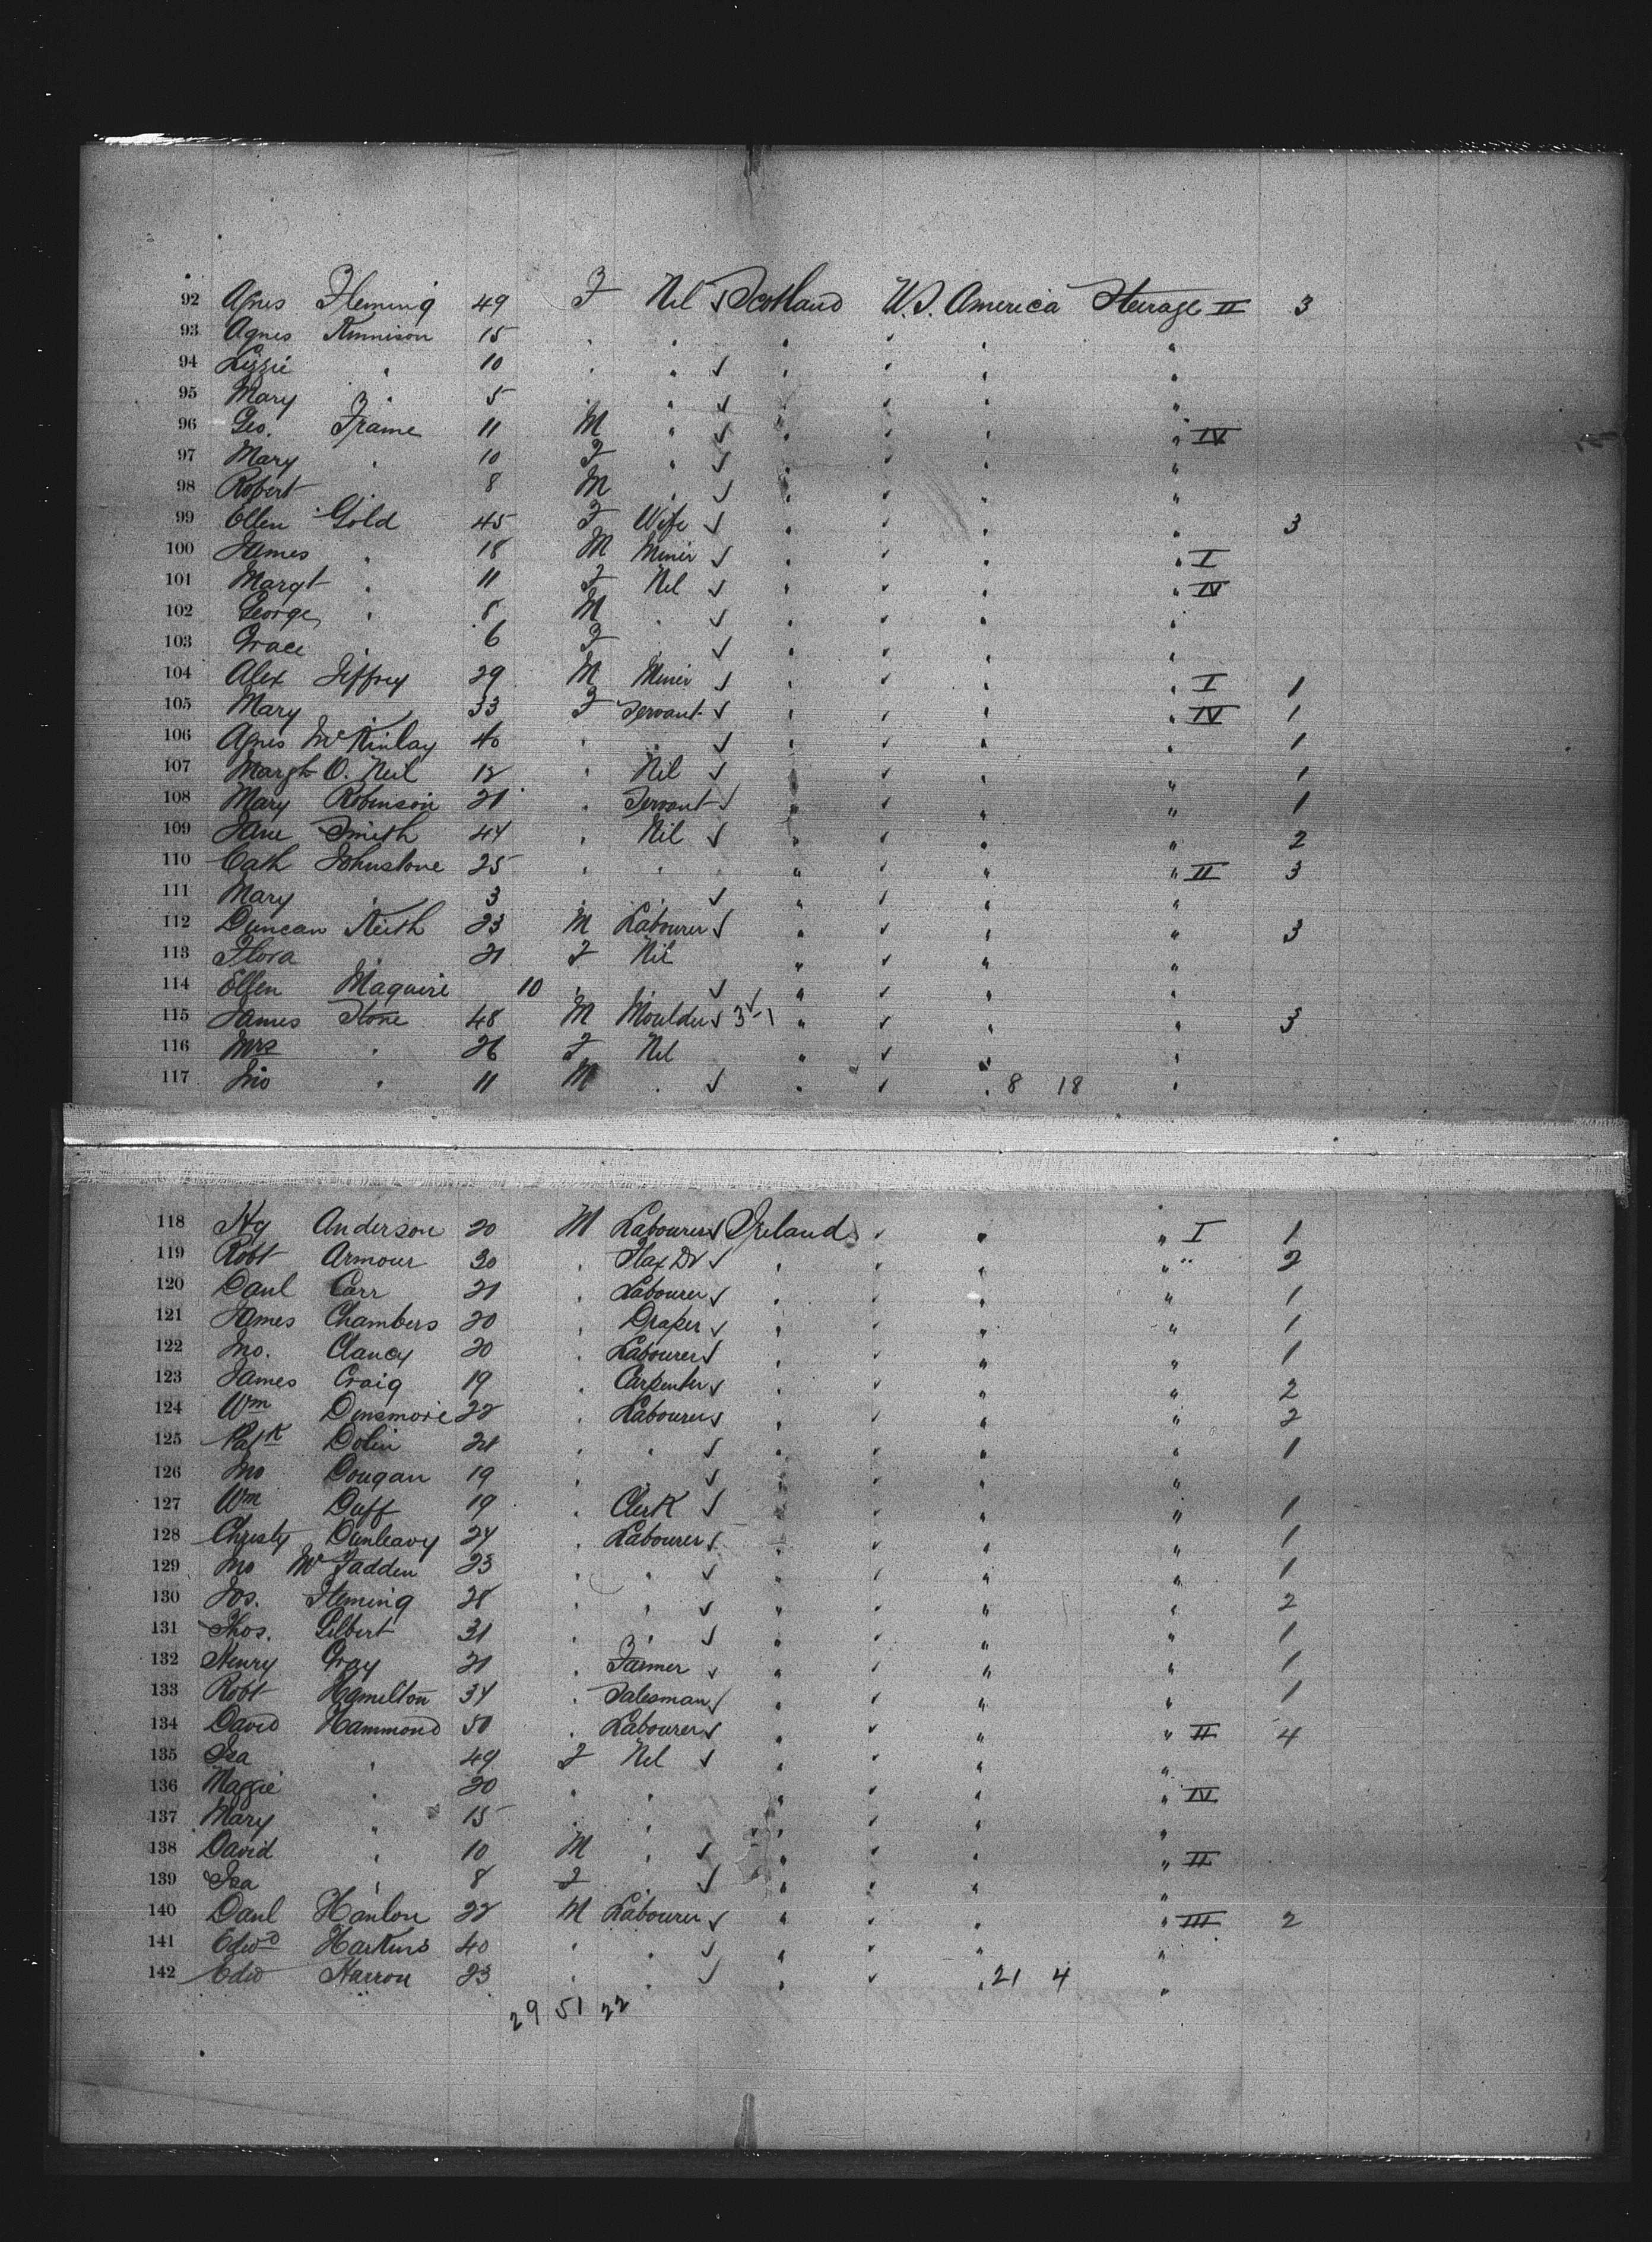 92 Agnes Fleming 49 F Nil √ Scotland U.S. America Steerage II 3
93 Agnes Kinnison 15 " " " " " "
94 Lizzie " 10 " " √ " " " "
95 Mary " 5 " " √ " " " "
96 Geo. Frame 11 M " √ " " " " IV
97 Mary " 10 F " √ " " " "
98 Robert 8 M " √ " " " "
99 Ellen Gold 45 F Wife √ " " " " 3
100 James " 18 M Miner √ " " " " I
101 Margt " 11 F Nil √ " " " " IV
102 George " 8 M " √ " " " "
103 Grace " 6 F " √ " " " "
104 Alex Jeffrey 29 M Miner √ " " " " I 1
105 Mary " 33 F Servant √ " " " " IV 1
106 Agnes McKinlay 40 " " √ " " " " 1
107 Margt O. Neil 12 " Nil √ " " " " 1
108 Mary Robinson 21 " Servant √ " " " " 1
109 Jane Smith 44 " Nil √ " " " " 2
110 Cath Johnstone 25 " " " " " " II 3
111 Mary " 3 " " √ " " " "
112 Duncan Keith 23 M Labourer √ " " " " 3
113 Flora " 21 F Nil " " " "
114 Ellen Maguire 10 " " √ " " " "
115 James Stone 48 M Moulder √ 3-1 " " " " 3
116 Mrs " 26 F Nil " " " "
117 Jno " 11 M " √ " " " 8 18 "
118 Hy Anderson 20 M Labourer √ Ireland " " " I 1
119 Robt Armour 30 " Flax Dr √ " " " " " 2
120 Danl Carr 21 " Labourer √ " " " " 1
121 James Chambers 20 " Draper √ " " " " 1
122 Jno. Clancy 20 " Labourer √ " " " " 1
123 James Craig 19 " Carpenter √ " " " " 2
124 Wm Dinsmore 22 " Labourer √ " " " " 2
125 Patk Dolin 21 " " √ " " " " 1
126 Jno Dougan 19 " " √ " " " "
127 Wm Duff 19 " Clerk √ " " " " 1
128 Christy Dunleavy 24 " Labourer √ " " " " 1
129 Jno McFadden 23 " " √ " " " " 1
130 Jos. Fleming 28 " " √ " " " " 2
131 Thos. Gilbert 31 " " √ " " " " 1
132 Henry Gray 21 " Farmer √ " " " " 1
133 Robt Hamilton 34 " Salesman √ " " " " 1
134 David Hammond 50 " Labourer √ " " " " II 4
135 Isa " 49 F Nil √ " " " "
136 Maggie " 20 " " " " " " IV
137 Mary " 15 " " " " " "
138 David " 10 M " √ " " " " II
139 Isa " 8 F " √ " " " "
140 Danl Hanlon 22 M Labourer √ " " " " III 2
141 Edwd Harkins 40 " " √ " " " "
142 Edw Harron 23 " " √ " " " 21 4 "
29 51 22